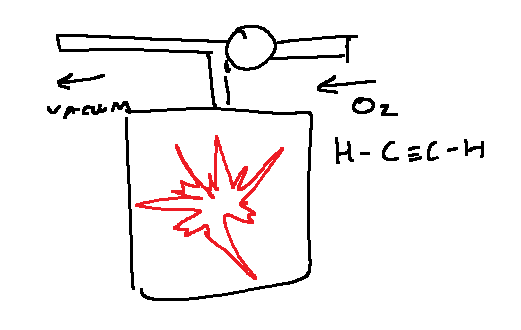 VACUUM
O₂
H-C≡C-H